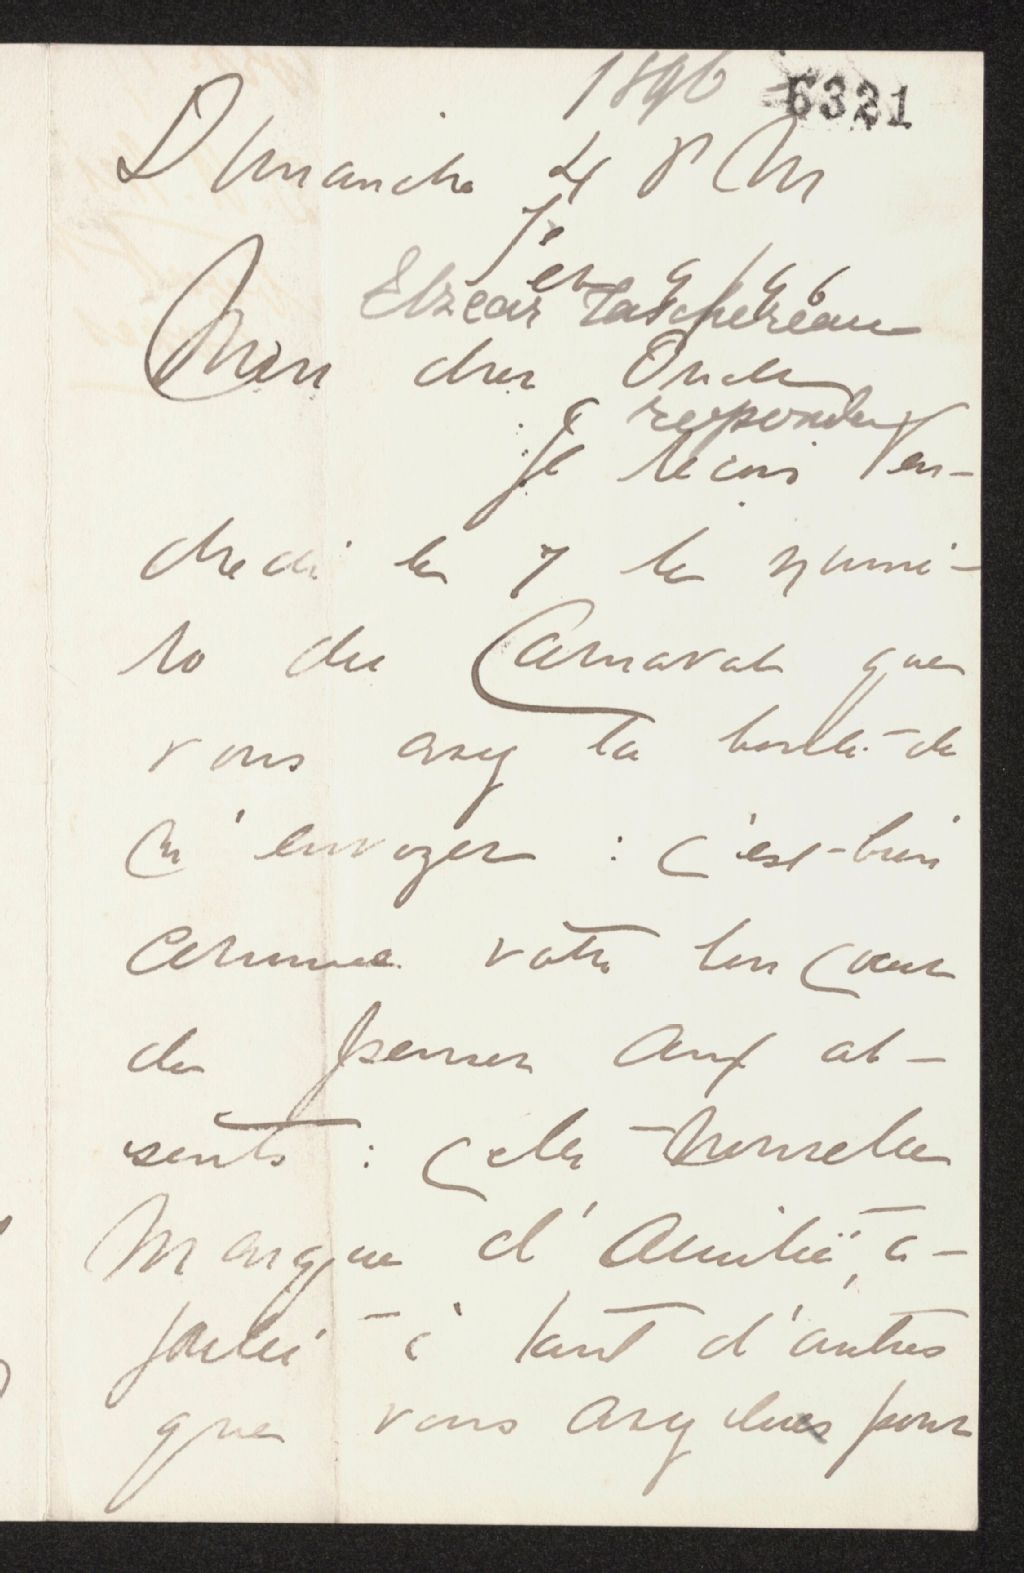 1896 6321
Dimanche 4 P M
Fev 9 96
Elzear Taschereau
Mon cher Oncle
repondu
Je recois Ven-
dredi le 7 le numé-
ro du Carnaval que
vous avez la bonté de
m'envoyer : c'est bien
comme votre bon coeur
de penser aux ab-
sents : cette nouvelle
marque d'amitié, a-
joutée à tant d'autres
que vous avez eues pour